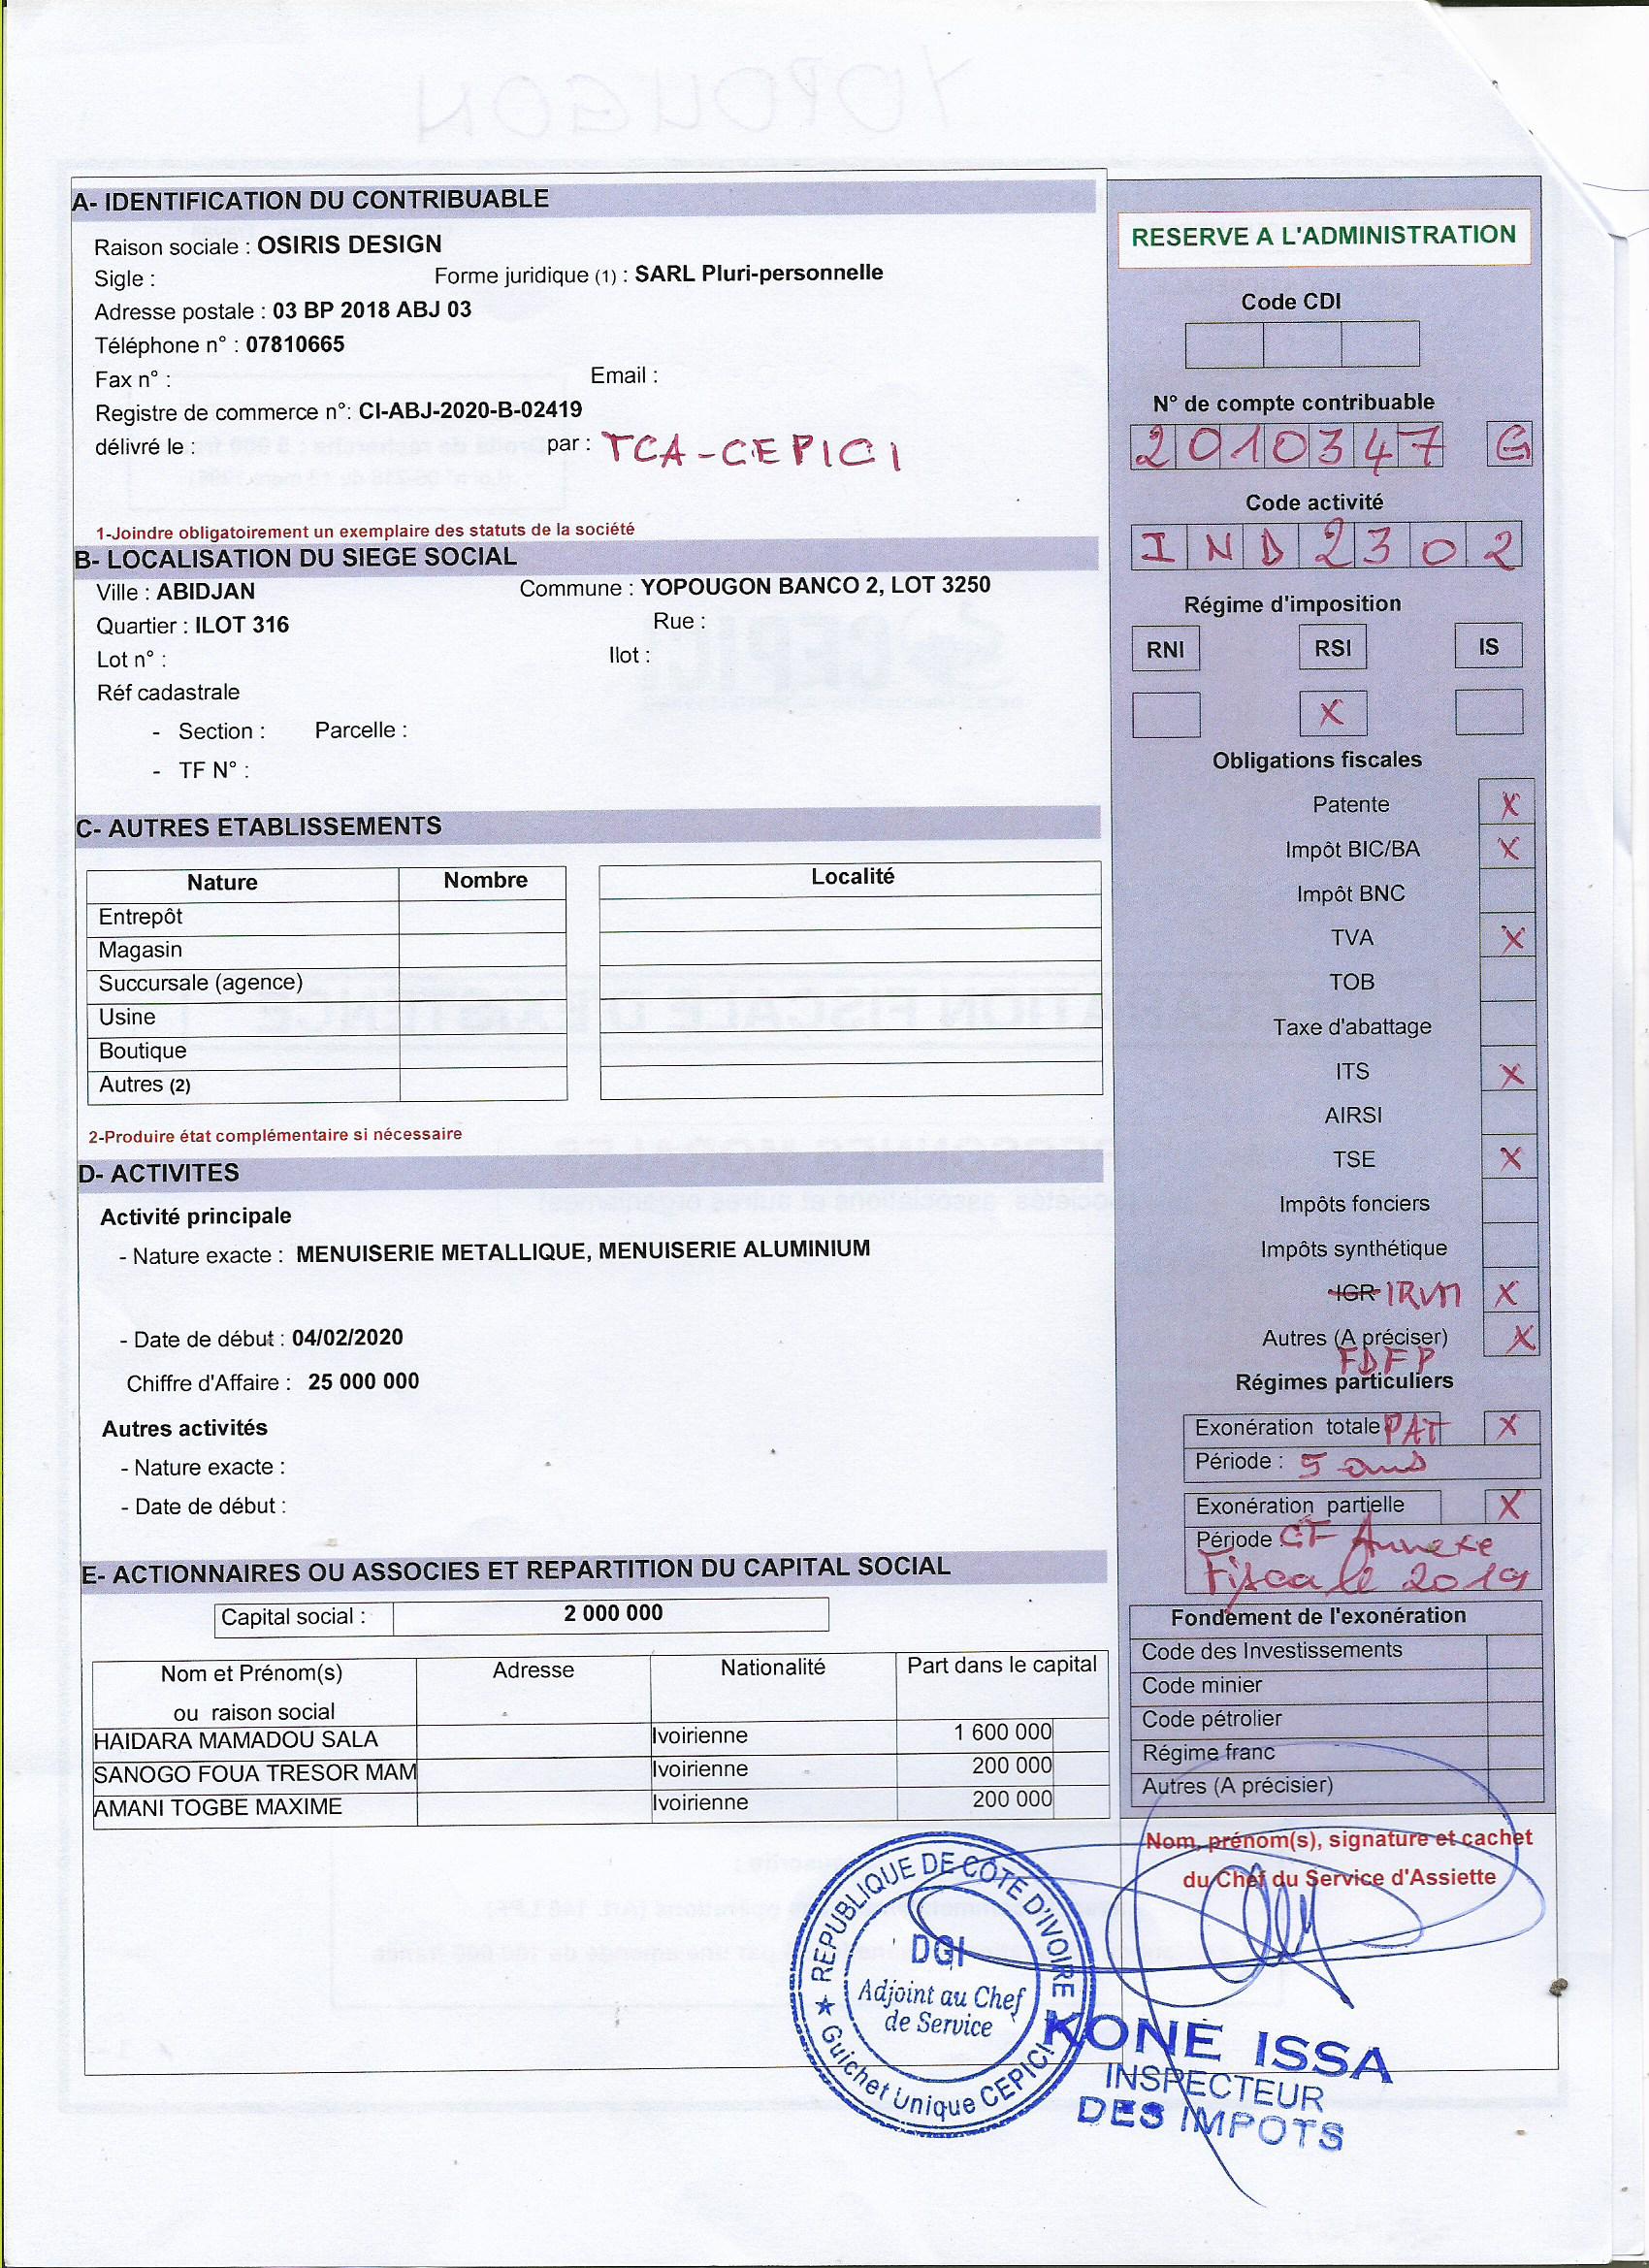 A- IDENTIFICATION DU CONTRIBUABLE
Raison sociale : OSIRIS DESIGN
Sigle : Forme juridique (1) : SARL Pluri-personnelle
Adresse postale : 03 BP 2018 ABJ 03
Téléphone n° : 07810665
Fax n° : Email :
Registre de commerce n°: CI-ABJ-2020-B-02419
délivré le : par : TCA-CEPICI
1-Joindre obligatoirement un exemplaire des statuts de la société
B- LOCALISATION DU SIEGE SOCIAL
Ville : ABIDJAN Commune : YOPOUGON BANCO 2, LOT 3250
Quartier : ILOT 316 Rue :
Lot n° : Ilot :
Réf cadastrale
- Section : Parcelle :
- TF N° :
C- AUTRES ETABLISSEMENTS
Nature Nombre Localité
Entrepôt
Magasin
Succursale (agence)
Usine
Boutique
Autres (2)
2-Produire état complémentaire si nécessaire
D- ACTIVITES
Activité principale
- Nature exacte : MENUISERIE METALLIQUE, MENUISERIE ALUMINIUM
- Date de début : 04/02/2020
Chiffre d'Affaire : 25 000 000
Autres activités
- Nature exacte :
- Date de début :
E- ACTIONNAIRES OU ASSOCIES ET REPARTITION DU CAPITAL SOCIAL
Capital social : 2 000 000
Nom et Prénom(s) Adresse Nationalité Part dans le capital
ou raison social
HAIDARA MAMADOU SALA Ivoirienne 1 600 000
SANOGO FOUA TRESOR MAM Ivoirienne 200 000
AMANI TOGBE MAXIME Ivoirienne 200 000
RESERVE A L'ADMINISTRATION
Code CDI
N° de compte contribuable
2010347 G
Code activité
IND2302
Régime d'imposition
RNI RSI IS
X
Obligations fiscales
Patente X
Impôt BIC/BA X
Impôt BNC
TVA X
TOB
Taxe d'abattage
ITS X
AIRSI
TSE X
Impôts fonciers
Impôts synthétique
IGR IRVM X
Autres (A préciser) X
FDFP
Régimes particuliers
Exonération totale PAT X
Période : 5 ans
Exonération partielle X
Période CF Annexe
Fiscale 2019
Fondement de l'exonération
Code des Investissements
Code minier
Code pétrolier
Régime franc
Autres (A précisier)
Nom, prénom(s), signature et cachet
du Chef du Service d'Assiette
REPUBLIQUE DE COTE D'IVOIRE
DGI
Adjoint au Chef
de Service
Guichet Unique CEPICI
KONE ISSA
INSPECTEUR
DES IMPOTS